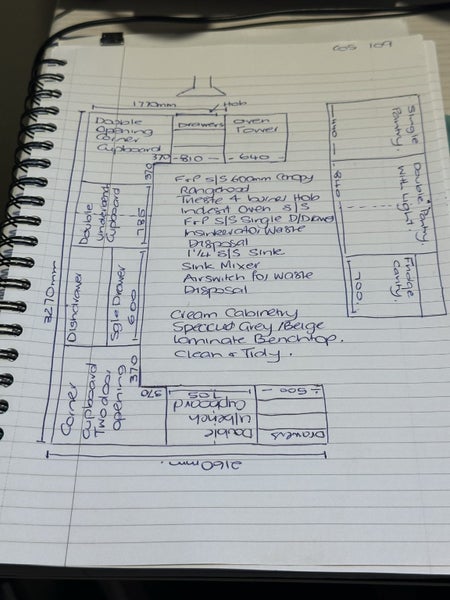 605 109
1770mm
Hob
Double
Opening
Corner
Cupboard
Drawers
Oven
Tower
370
-810-
-640-
370
Single
Pantry.
Double Pantry
With Light.
Fridge
Cavity.
-440-
-840-
700
F+P S/S 600mm Canopy
Rangehood
Trieste 4 burner Hob
Indesit Oven S/S
F+P S/S Single D/Drawer
Insinkerator Waste
Disposal
1 1/4 S/S Sink
Sink Mixer
Airswitch for Waste
Disposal
Cream Cabinetry
Speccled Grey/Beige
Laminate Benchtop.
Clean & Tidy.
3270mm
Double
Cupboard
785
Dishdrawer
Sgle Drawer
600
Corner
Cupboard
Two door
opening
370
370
Double
U/bench
Cupboard
705
-500-
Drawers
2160mm.